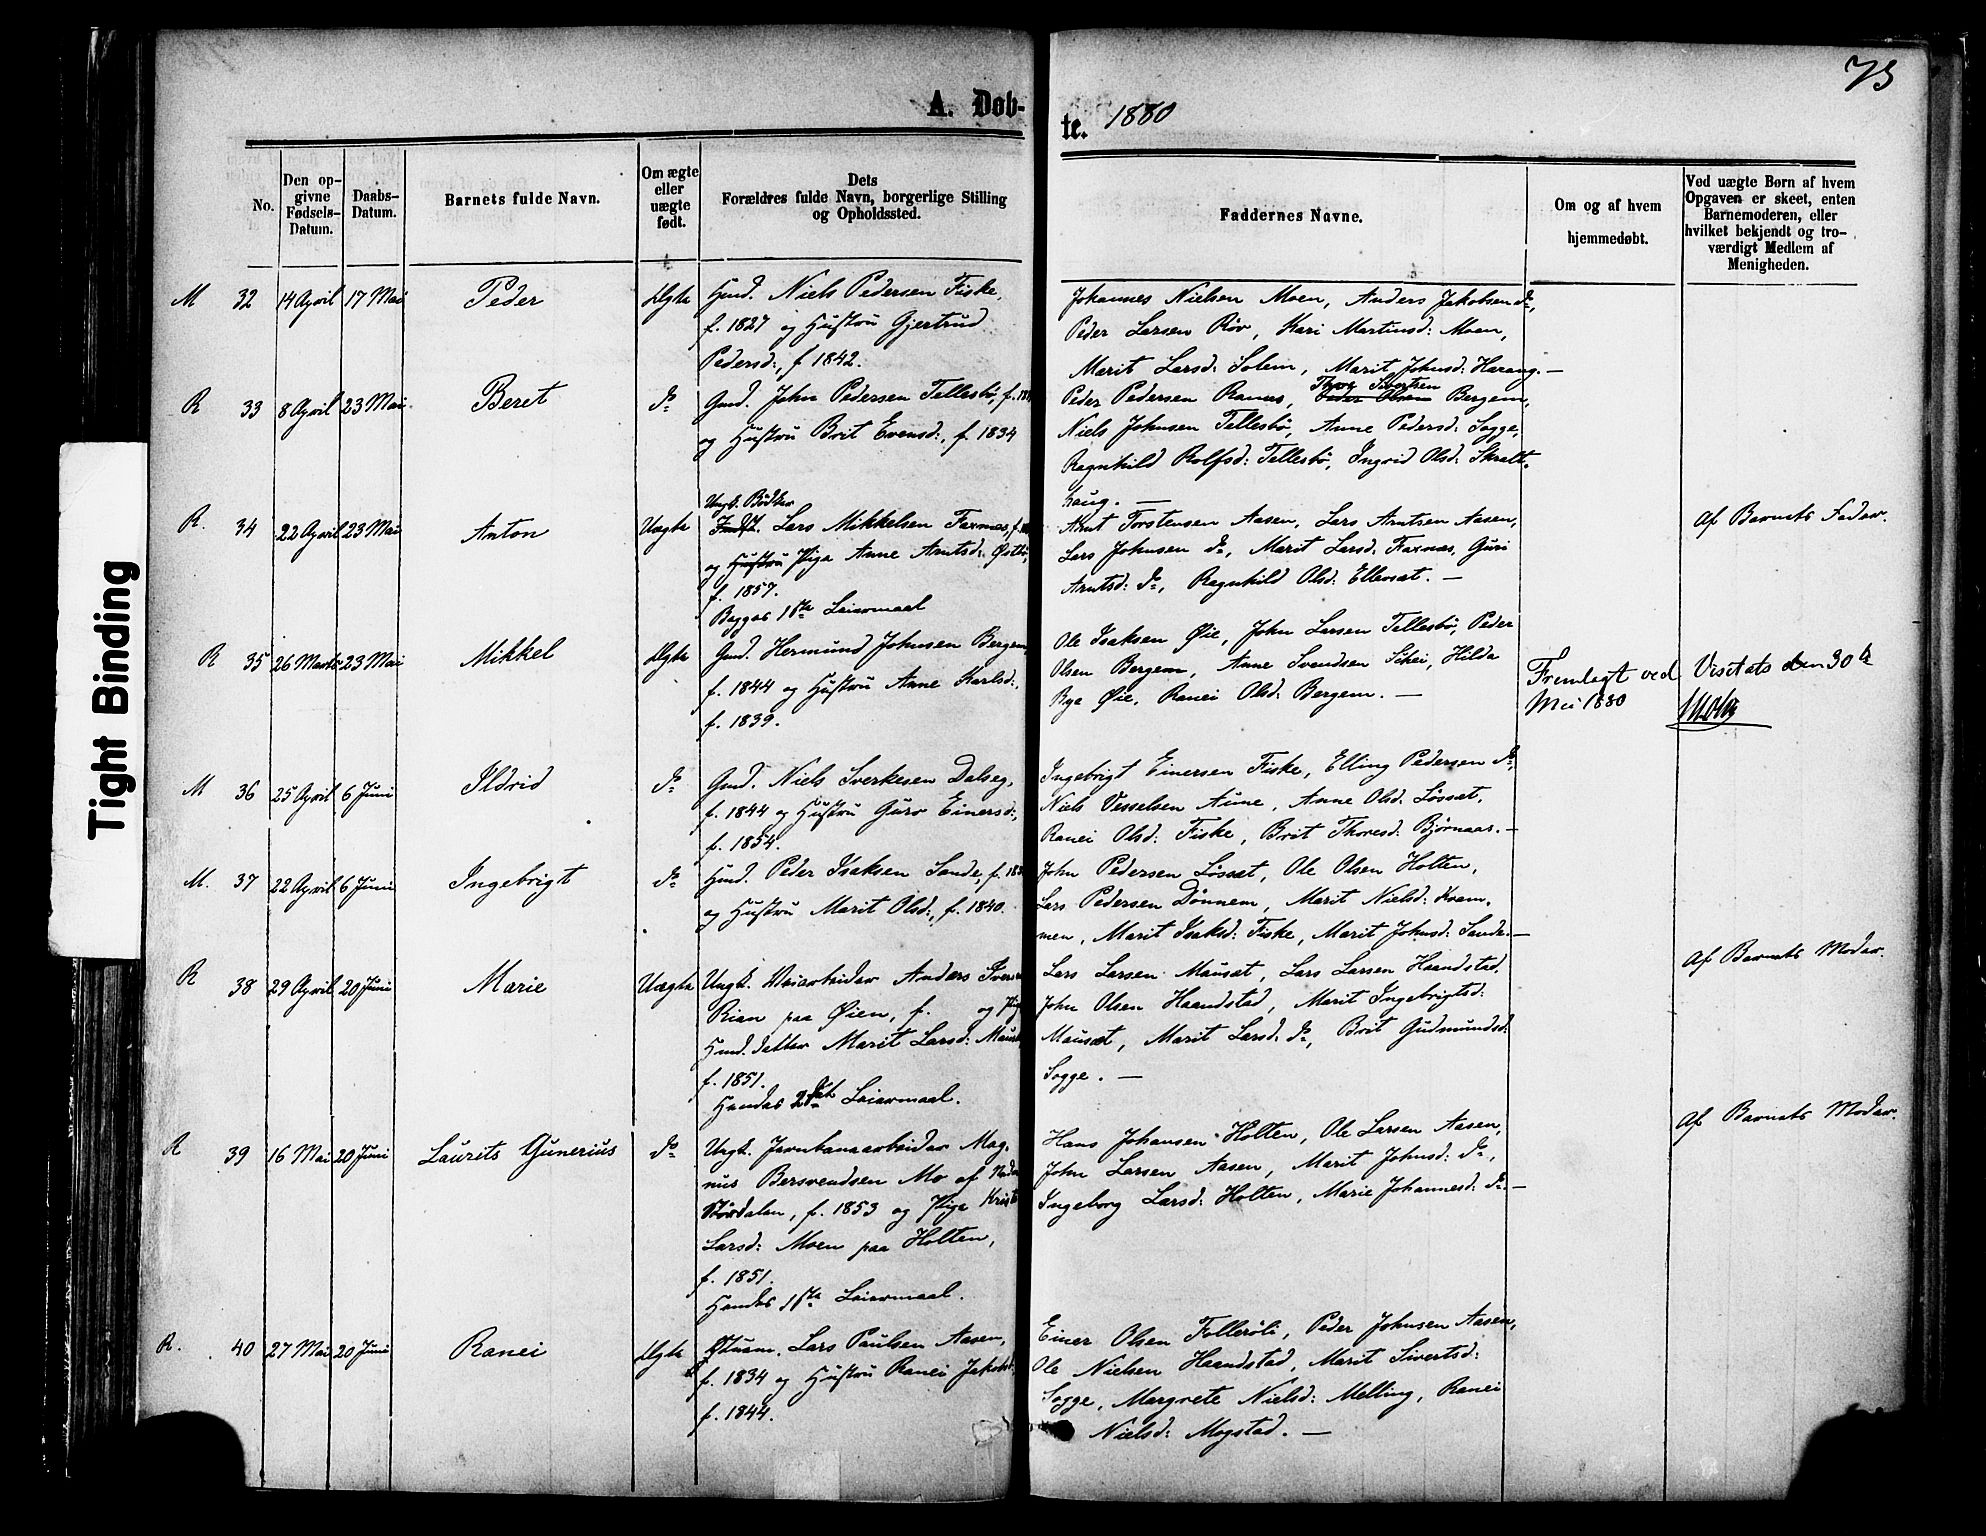 75
A. Døb-
te. 1880
No.
Den op-
givne
Fødsels-
Datum.
Daabs-
Datum.
Barnets fulde Navn.
Om ægte
eller
uægte
født.
Dets
Forældres fulde Navn, borgerlige Stilling
og Opholdssted.
Faddernes Navne.
Om og af hvem
hjemmedøbt.
Ved uægte Børn af hvem
Opgaven er skeet, enten
Barnemoderen, eller
hvilket bekjendt og tro-
værdigt Medlem af
Menigheden.
M 32 14 April 17 Mai Peder Ægte
Hmd. Niels Pedersen Fiske,
f. 1827 og Hustru Gjertrud
Pedersd:, f. 1842.
Johannes Nielsen Moen, Anders Jakobsen do,
Peder Larsen Röv, Kari Martinsd: Moen,
Marit Larsd: Solem, Marit Johnsd: Harang. —
R 33 8 April 23 Mai Beret do
Gmd. John Pedersen Tellesbö, f.
og Hustru Brit Evensd:, f. 1834
Thore Sivertsen
Peder Pedersen Ranes, Peder Olsen Bergem,
Niels Johnsen Tellesbö, Anne Pedersd: Sogge,
Ragnhild Rolfsd: Tellesbö, Ingrid Olsd: Skralt-
haug. —
R. 34 22 April 23 Mai Anton Uægte
Ungk. Bödker
Lars Mikkelsen Faxnes, f.
og Hustru Pige Anne Arntsd: Östbö,
f. 1857.
Begges 1ste Leiermaal
Arnt Torstensen Aasen, Lars Arntsen Aasen,
Lars Johnsen do, Marit Larsd: Faxnes, Guri
Arntsd: do, Ragnhild Olsd: Ellevset. —
Af Barnets Fader.
R 35 26 Marts 23 Mai Mikkel Ægte
Gmd. Hermund Johnsen Bergem,
f. 1844 og Hustru Anne Karlsd:,
f. 1839.
Ole Isaksen Øie, John Larsen Tellesbö, Peder
Olsen Bergem, Anne Svendsen Schei, Hilda
Rye Øie, Ranei Olsd: Bergem. —
Fremlagt ved Visitats den 30te
Mei 1880
M 36 25 April 6 Juni Ildrid do
Gmd. Niels Sverkesen Dalseg,
f. 1844 og Hustru Guro Einersd:,
f. 1854.
Ingebrigt Einersen Fiske, Elling Pedersen do,
Niels Vesselsen Aune, Anne Olsd: Lösset,
Ranei Olsd: Fiske, Brit Thoresd: Bjørnaas. —
M. 37 22 April 6 Juni Ingebrigt do
Hmd. Peder Isaksen Sande, f.
og Hustru Marit Olsd:, f. 1840.
John Pedersen Lösset, Ole Olsen Holten,
Lars Pedersen Dönnem, Marit Nielsd: Kvam-
men, Marit Isaksd: Fiske, Marit Johnsd: Sande. —
R 38 29 April 20 Juni Marie Uægte
Ungk. Veiarbeider Anders Iversen
Rian paa Øien, f. og Pige
Hmd. datter Marit Larsd: Mauset,
f. 1851.
Hendes 2det Leiermaal.
Lars Larsen Mauset, Lars Larsen Haandstad
John Olsen Haandstad, Marit Ingebrigtsd:
Mauset, Marit Larsd: do, Brit Gudmundsd:
Sogge. —
Af Barnets Moder.
R 39 16 Mai 20 Juni Laurits Gunerius do
Ungk. Jernbanearbeider Mag-
nus Bersvendsen Mo af Nedre
Stördalen, f. 1853 og Pige
Larsd: Moen paa Holten,
f. 1851.
Hendes 1ste Leiermaal.
Hans Johansen Holten, Ole Larsen Aasen,
John Larsen Aasen, Marit Johnsd: do,
Ingeborg Larsd: Holten, Marie Johannesd: do. —
Af Barnets Moder.
R. 40 27 Mai 20 Juni Ranei Ægte
Lars Paulsen Aasen,
f. 1834 og Hustru Ranei Jakobsd:,
f. 1844.
Einer Olsen Folleröli, Peder Johnsen Aasen,
Ole Nielsen Haandstad, Marit Sivertsd:
Sogge, Margrete Nielsd: Melling, Ranei
Nielsd: Mogstad. —
Tight Binding